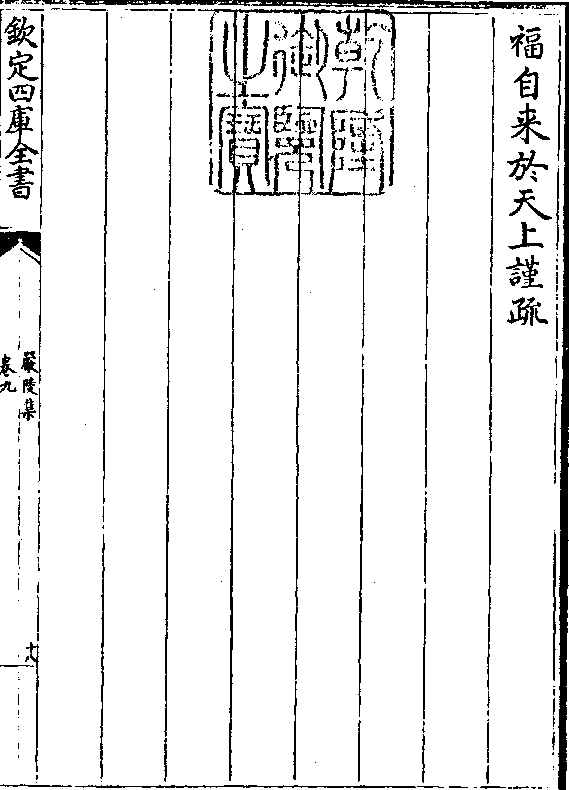 福自来於天上謹疏
乾隆御覽之寶
欽定四庫全書
嚴陵集
卷九
十八